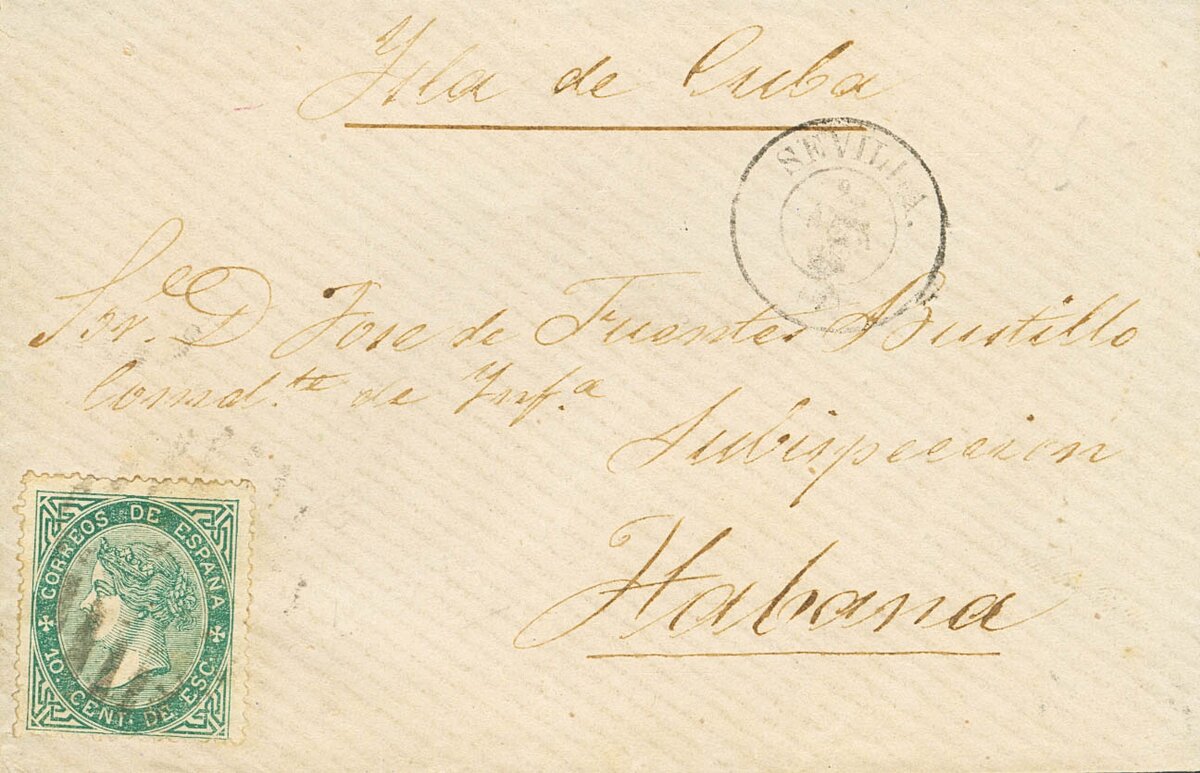 Ysla de Cuba
SEVILLA.
Sor. D Jose de Fuentes Bustillo
Comd.te de Ynf.a
Subispeccion
Habana
CORREOS DE ESPAÑA
10 CENT. DE ESC.